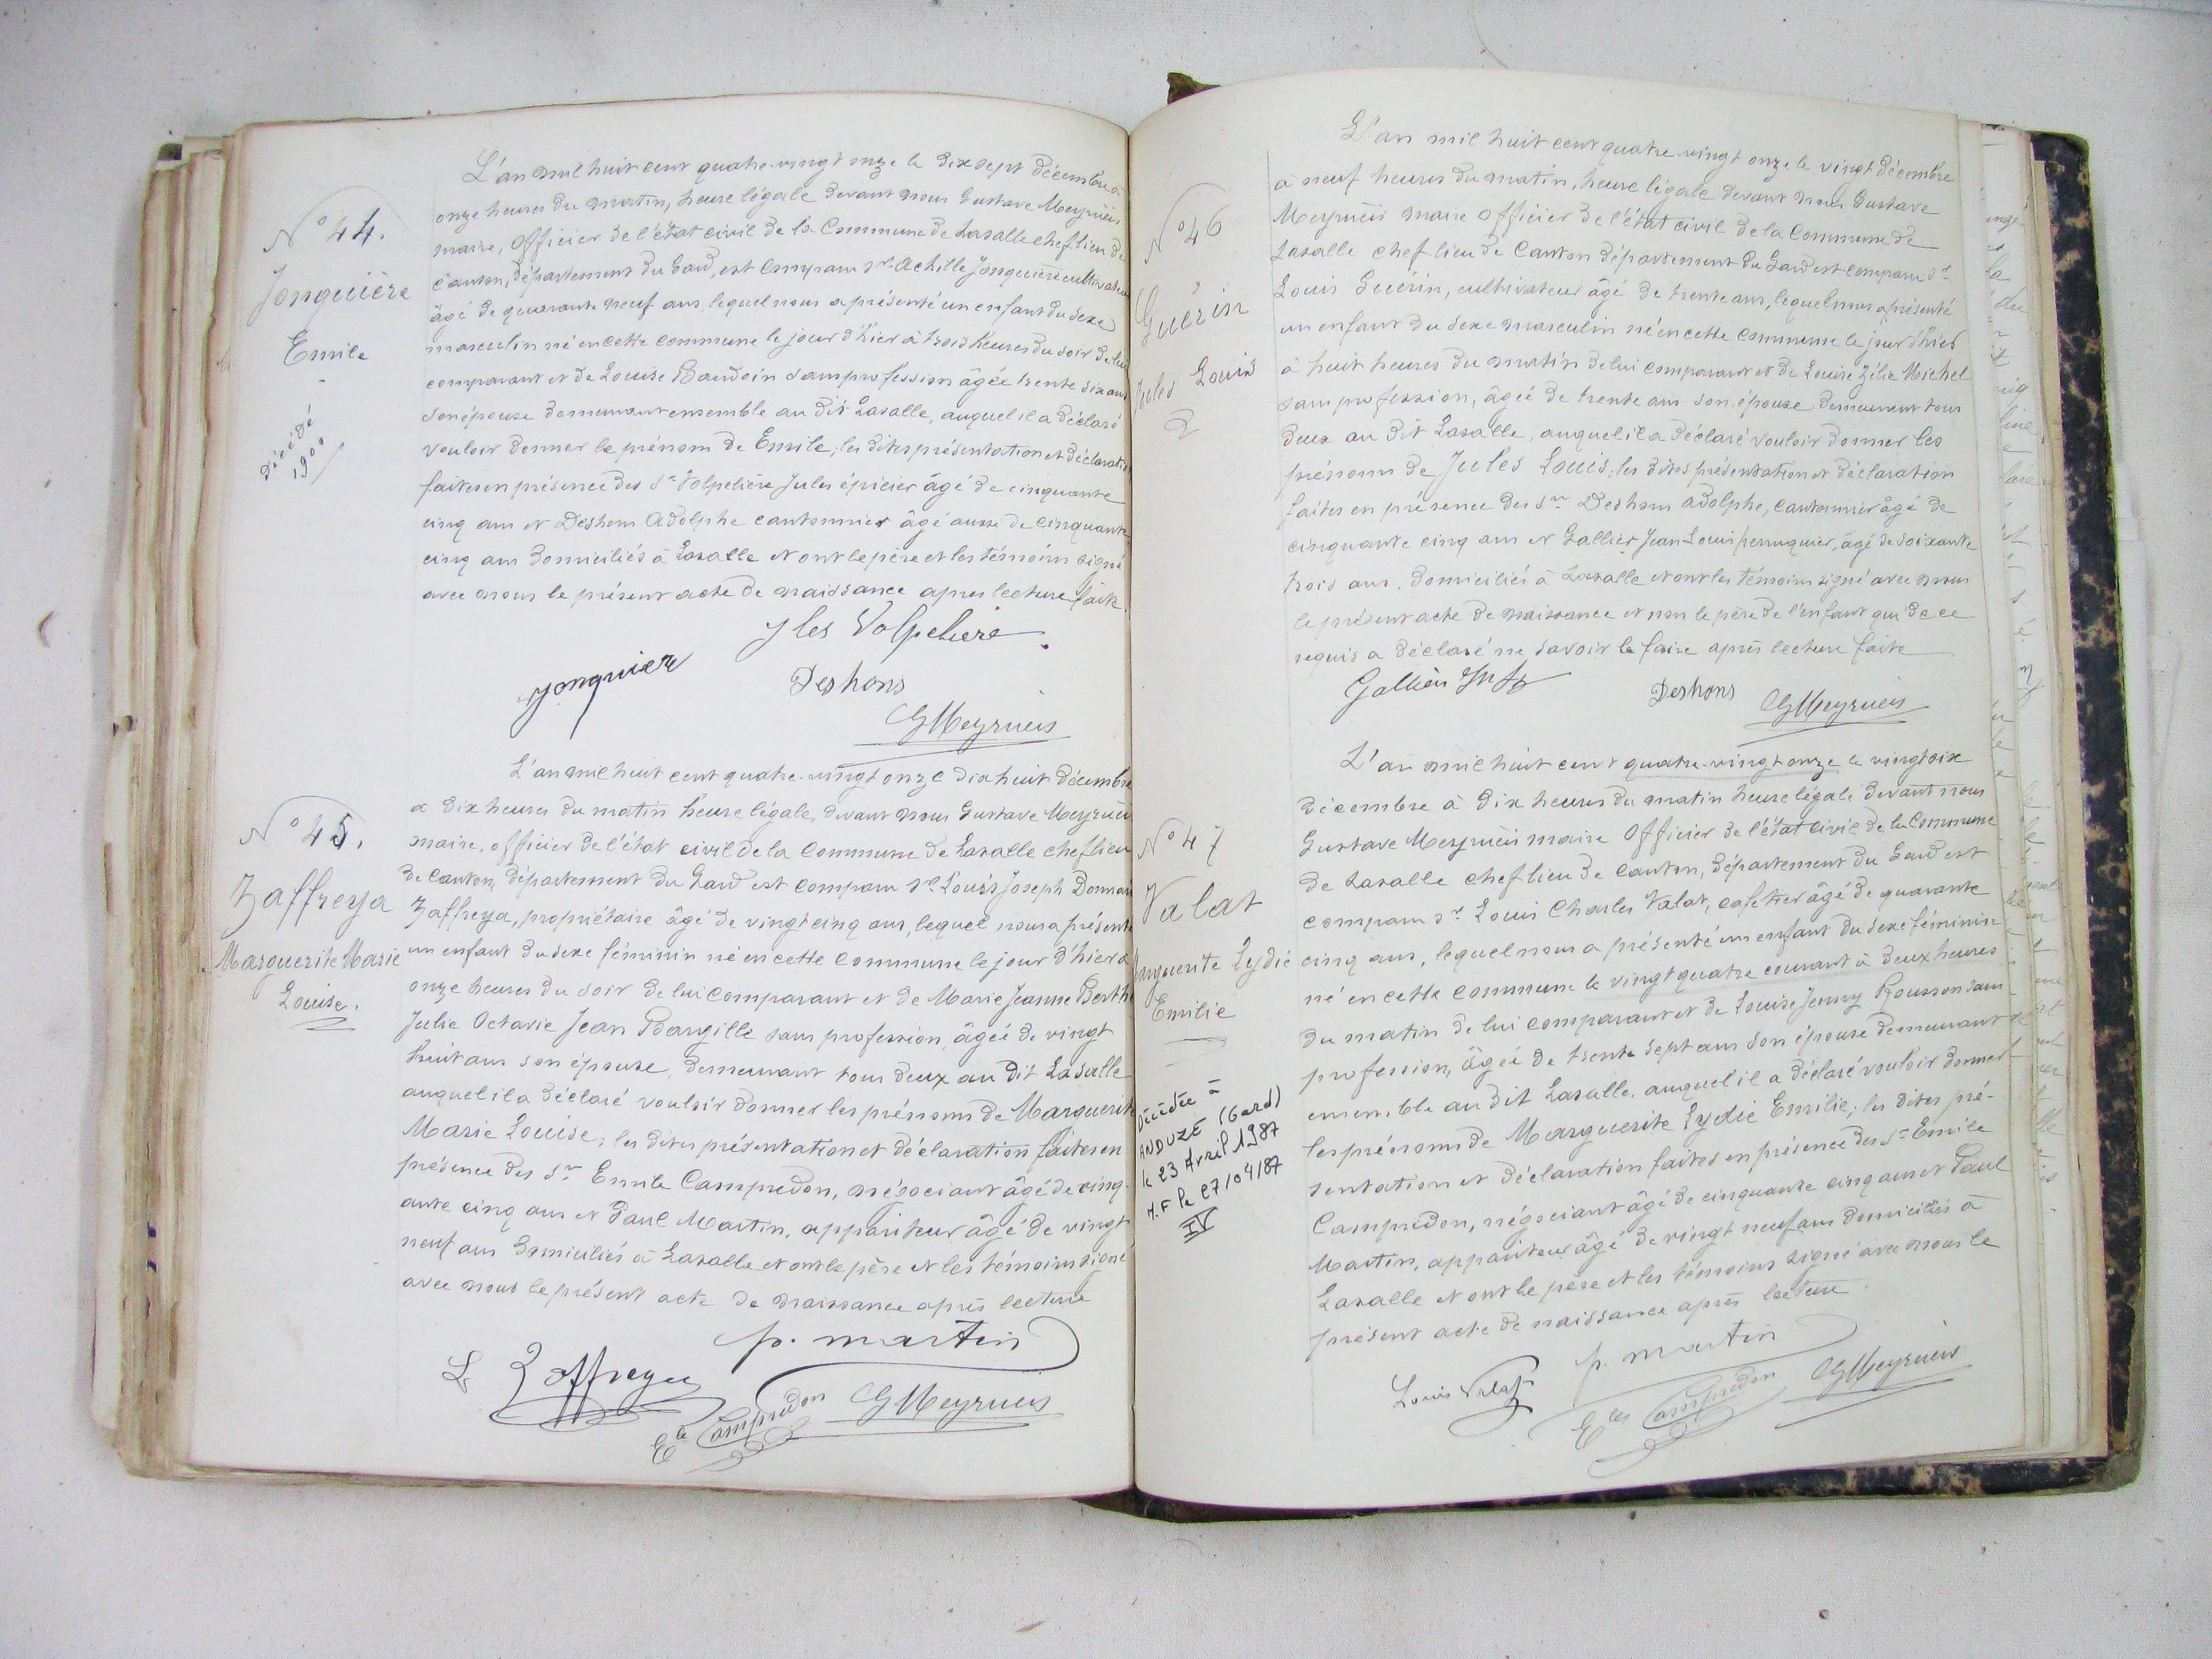 N° 44.
Jonquière
Emile
décédé
1900
L'an mil huit cent quatre-vingt onze le dix sept décembre à
onze heures du matin, heure légale devant nous Gustave Meyrueis
maire, officier de l'état civil de la Commune de Lasalle chef lieu de
canton, département du Gard, est comparu sr Achille Jonquière cultivateur
âgé de quarante neuf ans, lequel nous a présenté un enfant du sexe
masculin né en cette commune le jour d'hier à trois heures du soir de lui
comparant et de Louise Baudoin sans profession âgée trente six ans
son épouse demeurant ensemble au dit Lasalle, auquel il a déclaré
vouloir donner le prénom de Emile; les dites présentation et déclaration
faites en présence des Srs Volpelière Jules épicier âgé de cinquante
cinq ans et Deshons Adolphe cantonnier âgé aussi de cinquante
cinq ans domiciliés à Lasalle et ont le père et les témoins signé
avec nous le présent acte de naissance apres lecture faite.
Jles Volpeliere
Jonquier
Deshons
GMeyrueis
N° 45.
Zaffreya
Marguerite Marie
Louise.
L'an mil huit cent quatre-vingt onze dix huit décembre
a dix heures du matin heure légale, devant nous Gustave Meyrueis
maire, officier de l'état civil de la Commune de Lasalle chef lieu
de canton, département du Gard est comparu sr Louis Joseph
Zaffreya, propriétaire âgé de vingt cinq ans, lequel nous a présenté
un enfant du sexe féminin né en cette commune le jour d'hier à
onze heures du soir de lui comparant et de Marie Jeanne Berthe
Julie Octavie Jean Bargille sans profession, âgée de vingt
huit ans son épouse, demeurant tous deux au dit Lasalle
auquel il a déclaré vouloir donner les prénoms de Marguerite
Marie Louise; les dites présentation et déclaration faites en
présence des Srs Emile Campredon, négociant âgé de cinq-
ante cinq ans et Paul Martin, appariteur âgé de vingt
neuf ans domiciliés à Lasalle et ont le père et les témoins signé
avec nous le présent acte de naissance après lecture
p. martin
L Zaffreya
Ele Campredon
GMeyrueis
N° 46
Guérin
Jules Louis
L'an mil huit cent quatre vingt onze le vingt décembre
à neuf heures du matin, heure légale devant nous Gustave
Meyrueis maire officier de l'état civil de la Commune de
Lasalle chef lieu de Canton département du Gard est comparu sr
Louis Guérin, cultivateur âgé de trente ans, lequel nous a présenté
un enfant du sexe masculin né en cette commune le jour d'hier
à huit heures du matin de lui comparant et de Louise Zélie Michel
sans profession, âgée de trente ans son épouse demeurant tous
deux au dit Lasalle, auquel il a déclaré vouloir donner les
prénoms de Jules Louis; les dites présentation et déclaration
faites en présence des Srs Deshons Adolphe, cantonnier âgé de
cinquante cinq ans et Gallier Jean Louis perruquier, âgé de soixante
trois ans, domiciliés à Lasalle et ont les témoins signé avec nous
le présent acte de naissance et non le père de l'enfant qui de ce
requis a déclaré ne savoir le faire après lecture faite
Deshons
GMeyrueis
N° 47
Valat
Marguerite Lydie
Emilie
Décédée à
ANDUZE (Gard)
le 23 Avril 1987
le 27/04/87
L'an mil huit cent quatre-vingt onze le vingt six
décembre à dix heures du matin heure légale devant nous
Gustave Meyrueis maire officier de l'état civil de la Commune
de Lasalle chef lieu de Canton, département du Gard est
comparu sr Louis Charles Valat, cafetier âgé de quarante
cinq ans, lequel nous a présenté un enfant du sexe féminin
né en cette commune le vingt quatre courant à deux heures
du matin de lui comparant et de Louise Jenny Rousson sans
profession, âgée de trente sept ans son épouse demeurant
ensemble au dit Lasalle, auquel il a déclaré vouloir donner
les prénoms de Marguerite Lydie Emilie; les dites pré-
sentation et déclaration faites en présence des Srs Emile
Campredon, négociant âgé de cinquante cinq ans et Paul
Martin, appariteur âgé de vingt neuf ans domiciliés à
Lasalle et ont le père et les témoins signé avec nous le
présent acte de naissance après lecture.
p. martin
Louis Valat
Ele Campredon
GMeyrueis